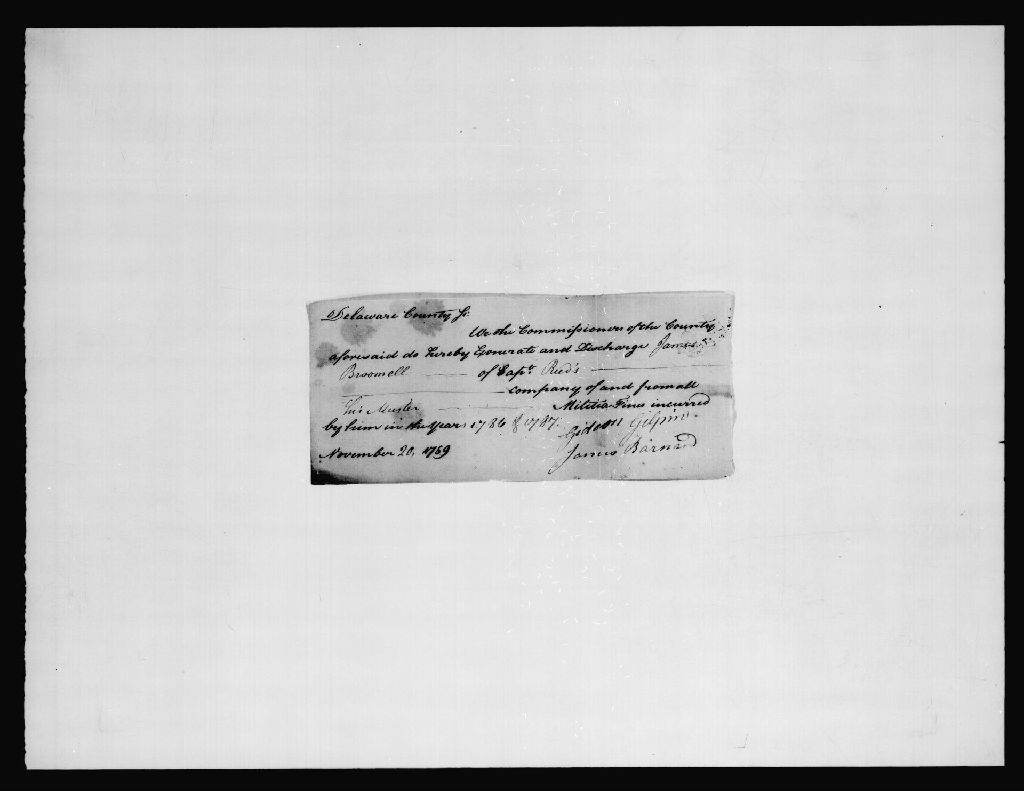 Delaware County ss
We the Commissioners of the County
aforesaid do hereby Exonerate and Discharge James
Broomell of Capt Reed's
company of and from all
his Muster Militia Fines incurred
by him in the years 1786 & 1787.
Gideon Gilpin
November 20, 1789
James Barnard